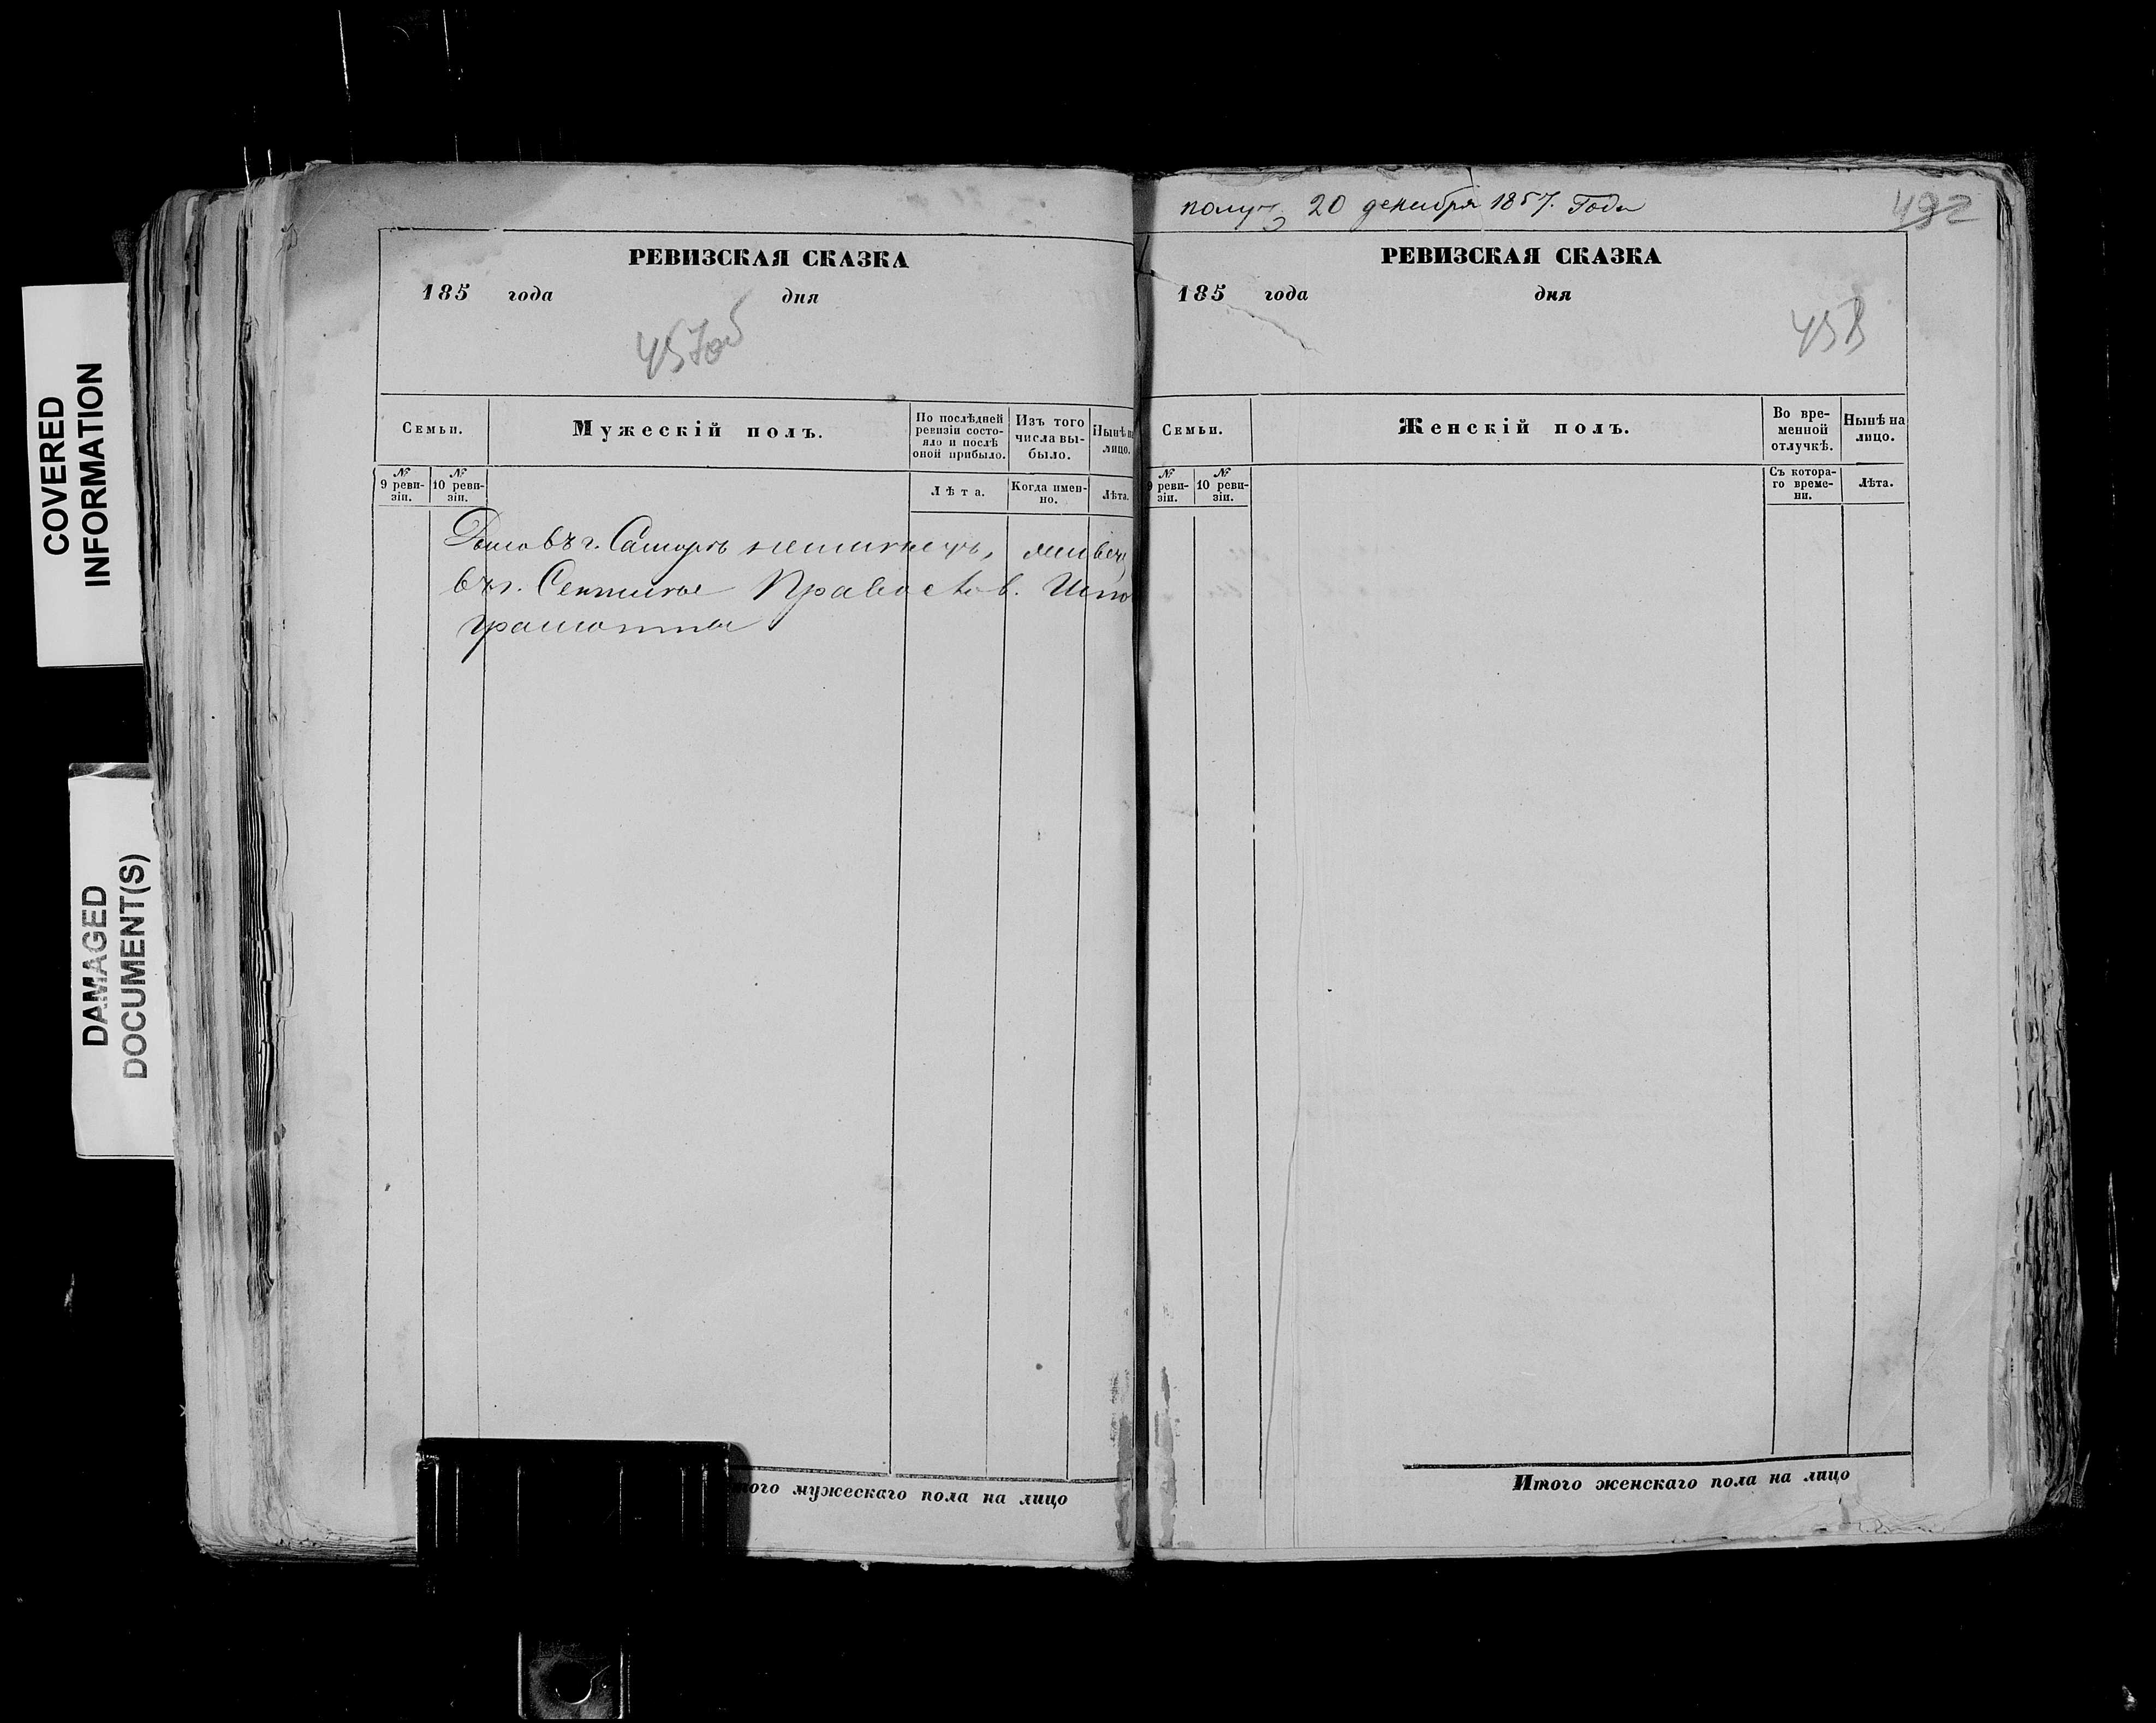 COVERED
INFORMATION
DAMAGED
DOCUMENT(S)
РЕВИЗСКАЯ СКАЗКА
185 года дня
457об
Семьи.
Мужескій полъ.
По послѣдней
ревизіи состо-
яло и послѣ
оной прибыло.
Изъ того
числа вы-
было.
Нынѣ н
лицо.
№
9 реви-
зіи.
№
10 реви-
зіи.
Лѣта.
Когда имен-
но.
Лѣта.
въ г.
въ г.
грамотны
того мужескаго пола на лицо
получ 20 декабря 1857. Года
492
РЕВИЗСКАЯ СКАЗКА
185 года дня
458
Семьи.
Женскій полъ.
Во вре-
менной
отлучкѣ.
Нынѣ на
лицо.
№
9 реви-
зіи.
№
10 реви-
зіи.
Съ котора-
го време-
ни.
Лѣта.
Итого женскаго пола на лицо